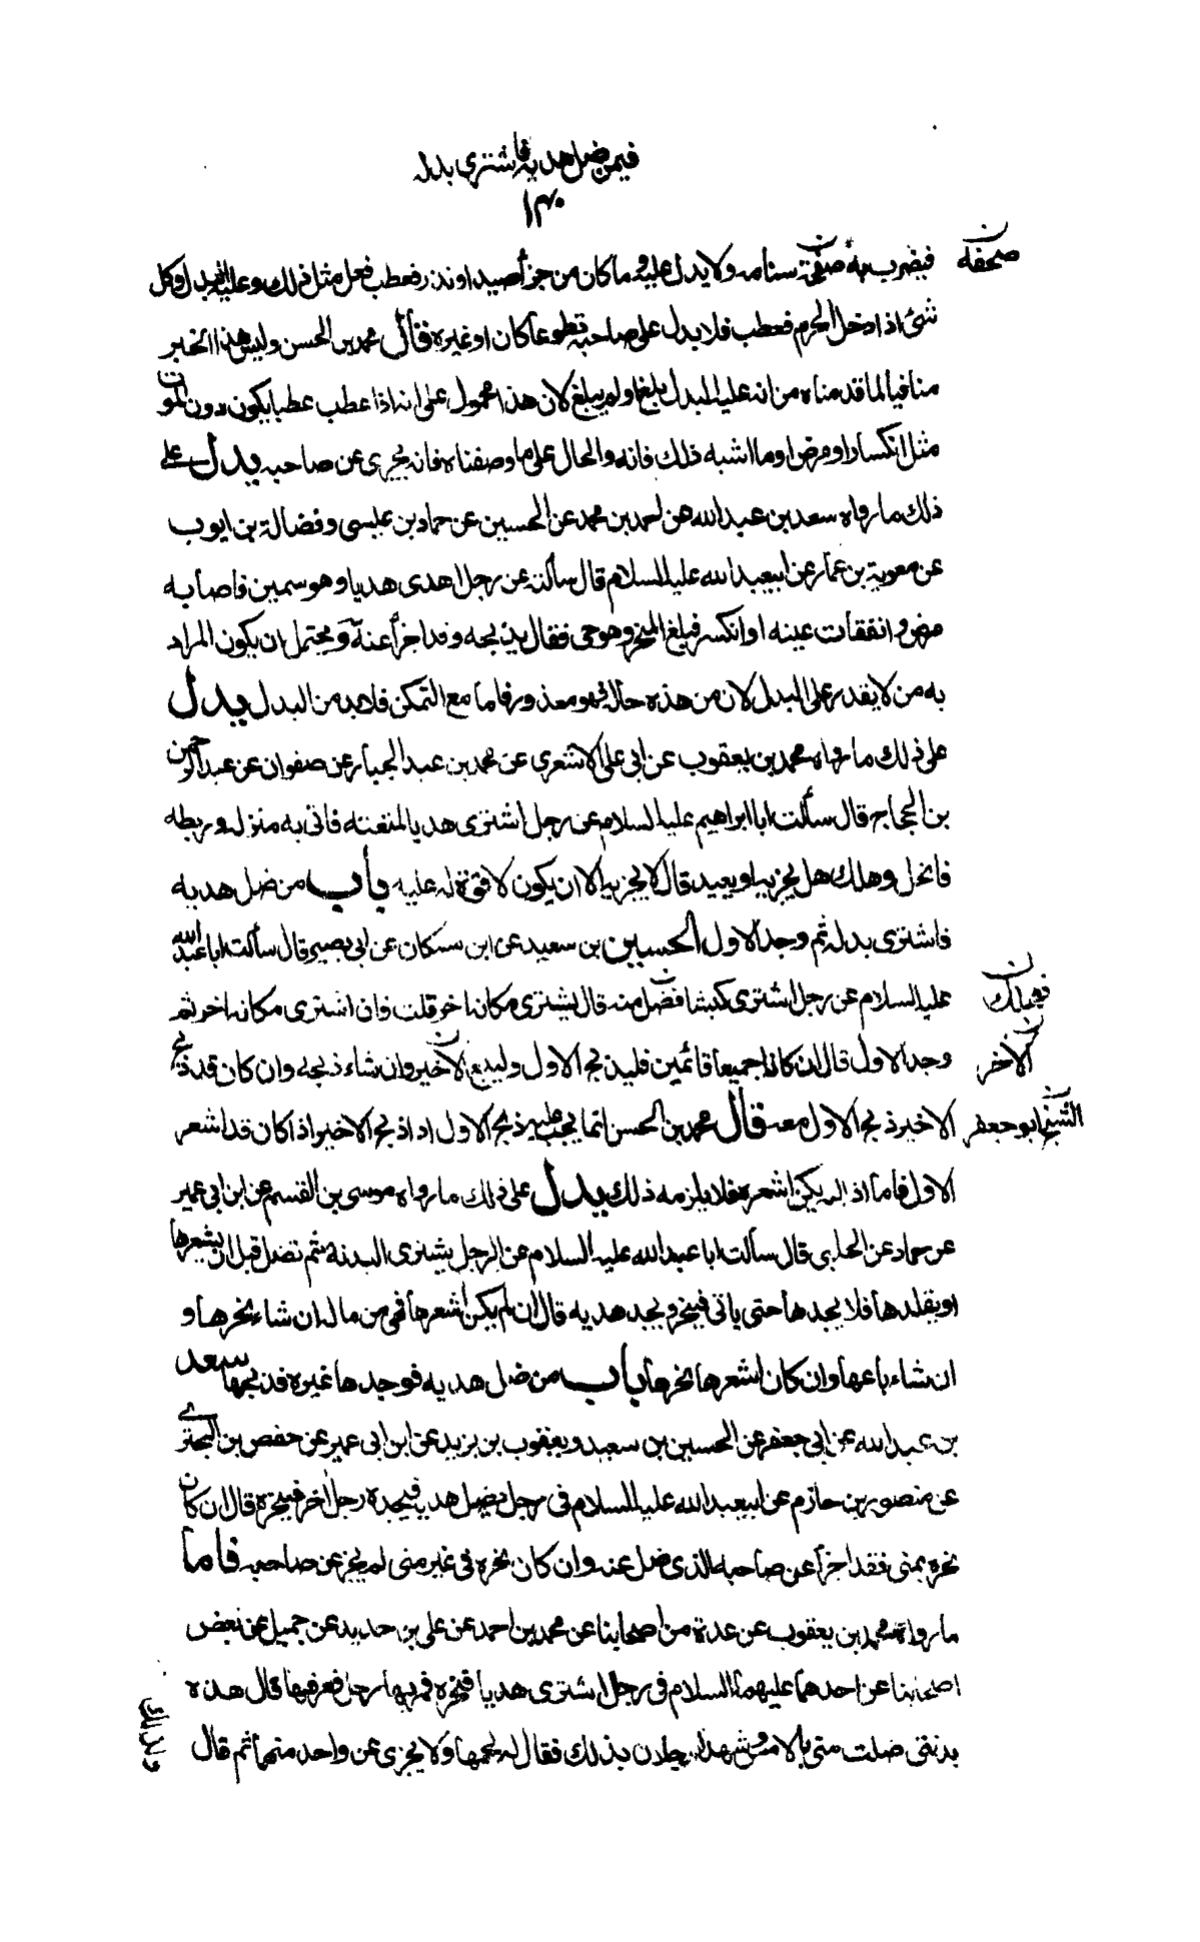 فيمن ضل هديه فاشترى بدله
١٣٠
فيضرب به صفحة سنامه ولا بدل عليه وما كان من جزاء صيد او نذر فعطب فعل مثل ذلك وعليه البدل وكل
صحفة
شئ اذا دخل الحرم فعطب فلا بدل على صاحبه تطوعا كان او غيره فقال محمد بن الحسن وليس هذا الخبر
منافيا لما قدمناه من انه عليه البدل بلغ او لم يبلغ لان هذا محمول على انه اذا عطب عطبا يكون دون الموت
مثل انكسار او مرض او ما اشبه ذلك فانه والحال على ما وصفناه فانه يجزى عن صاحبه يدل على
ذلك ما رواه سعد بن عبد الله عن احمد بن محمد عن الحسين عن حماد بن عيسى وفضالة بن ايوب
عن معوية بن عمار عن ابيعبد الله عليه السلام قال سألته عن رجل اهدى هديا وهو سمين فاصابه
مرض وانفقات عينه او انكسر فبلغ المنحر وهو حى فقال يذبحه وقد اجزأ عنه ويحتمل ان يكون المراد
به من لا يقدر على البدل لان من هذه حاله فهو معذور فاما مع التمكن فلابد من البدل يدل
على ذلك ما رواه محمد بن يعقوب عن ابى على الاشعرى عن محمد بن عبد الجبار عن صفوان عن عبد الرحمن
بن الحجاج قال سألت ابا ابراهيم عليه السلام عن رجل اشترى هديا لمتعته فاتى به منزله وربطه
فانحل وهلك هل يجزيه او يعيد قال لا يجزيه الا ان يكون لا قوة له عليه باب من ضل هديه
فاشترى بدله ثم وجد الاول الحسين بن سعيد عن ابن مسكان عن ابى بصير قال سألت ابا عبد الله
عليه السلام عن رجل اشترى كبشا فضل منه قال يشترى مكانه اخر قلت فان اشترى مكانه اخر ثم
فهلك
وجد الاول قال ان كانا جميعا قائمين فليذبح الاول وليبع الاخير وان شاء ذبحه وان كان قد ذبح
الآخر
الاخير ذبح الاول معه قال محمد بن الحسن انما يجب عليه ذبح الاول اذا ذبح الاخير اذا كان قد اشعر
الشيخ ابو جعفر
الاول فاما اذا لم يكن اشعره فلا يلزمه ذلك يدل على ذلك ما رواه موسى بن القسم عن ابن ابى عمير
عن حماد عن الحلبى قال سألت ابا عبد الله عليه السلام عن الرجل يشترى البدنة ثم تضل قبل ان يشعرها
او يقلدها فلا يجدها حتى ياتى فينحر ويجد هديه قال ان لم يكن اشعرها فهى من ماله ان شاء نحرها و
ان شاء باعها وان كان اشعرها نحرها باب من ضل هديه فوجدها غيره فذبحها سعد
بن عبد الله عن ابى جعفر عن الحسين بن سعيد ويعقوب بن يزيد عن ابن ابى عمير عن حفص بن البخترى
عن منصور بن حازم عن ابيعبد الله عليه السلام فى رجل يضل هديه فيجده رجل اخر فينحره قال ان كان
نحره بمنى فقد اجزأ عن صاحبه الذى ضل عنه وان كان نحره فى غير منى لم يجز عن صاحبه فاما
ما رواه محمد بن يعقوب عن عدة من اصحابنا عن محمد بن احمد عن على بن حديد عن جميل عن بعض
اصحابنا عن احدهما عليهما السلام فى رجل اشترى هديا فنحره فمر بها رجل فعرفها قال هذه
بدنتى ضلت منى بالامس وشهد له رجلان بذلك فقال له لحمها ولا يجزى عن واحد منهما ثم قال
ولذلك